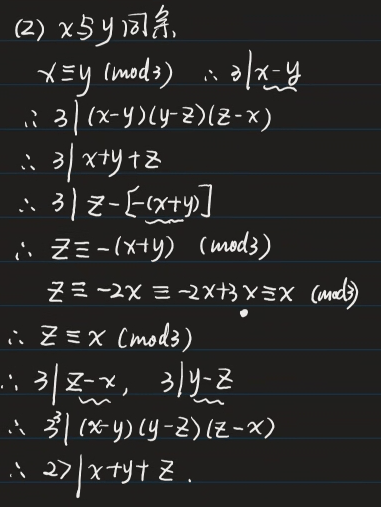 (2) x与y同余
x≡y (mod3) ∴ 3|x-y
∴ 3|(x-y)(y-z)(z-x)
∴ 3|x+y+z
∴ 3|z-[-(x+y)]
∴ z≡-(x+y) (mod3)
z≡-2x≡-2x+3x≡x (mod3)
∴ z≡x (mod3)
∴ 3|z-x, 3|y-z
∴ 3³|(x-y)(y-z)(z-x)
∴ 27|x+y+z.